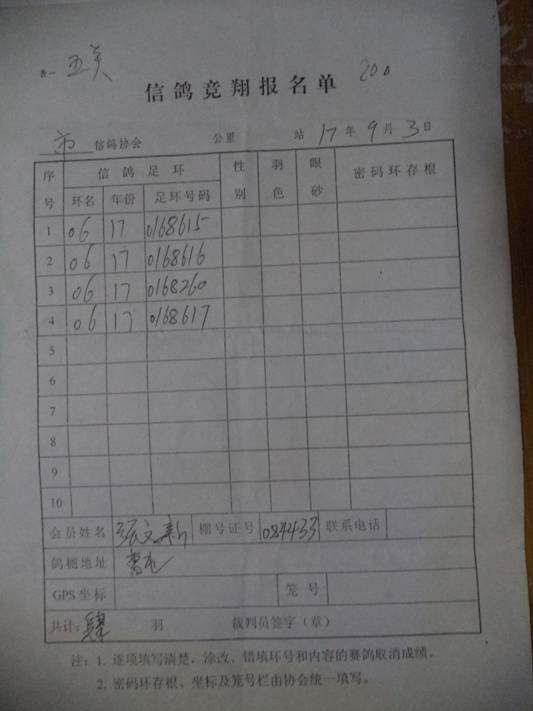 表一 五关
信鸽竞翔报名单 200
市 信鸽协会 公里 站 17年9月3日
序号 信鸽足环 性别 羽色 眼砂 密码环存根
环名 年份 足环号码
1 06 17 0168615
2 06 17 0168616
3 06 17 0168260
4 06 17 0168617
5
6
7
8
9
10
会员姓名 张文新 棚号证号 084433 联系电话
鸽棚地址
GPS坐标 笼号
共计: 肆 羽 裁判员签字(章)
注: 1. 逐项填写清楚,涂改、错填环号和内容的赛鸽取消成绩。
2. 密码环存根、坐标及笼号栏由协会统一填写。